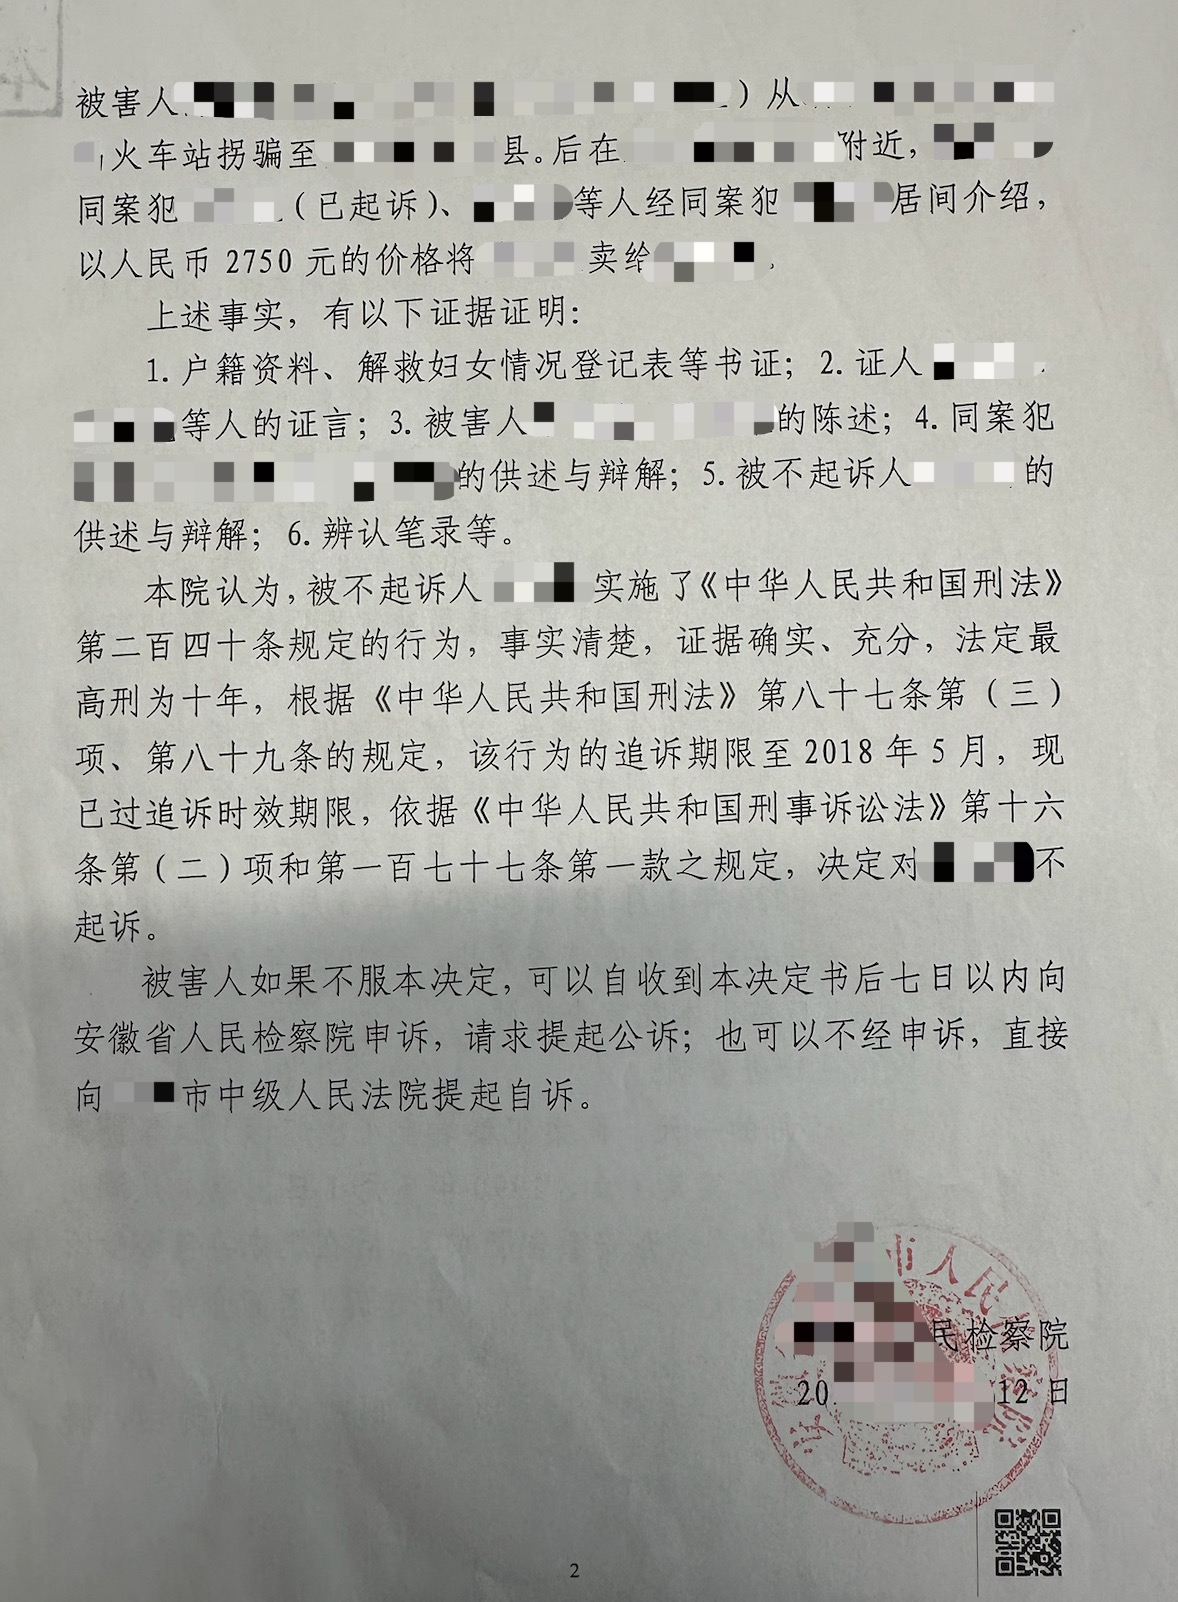 被害人 ）从
火车站拐骗至 县。后在 附近，
同案犯 （已起诉）、 等人经同案犯 居间介绍，
以人民币 2750 元的价格将 卖给
上述事实，有以下证据证明：
1. 户籍资料、解救妇女情况登记表等书证；2. 证人
等人的证言；3. 被害人 的陈述；4. 同案犯
的供述与辩解；5. 被不起诉人 的
供述与辩解；6. 辨认笔录等。
本院认为，被不起诉人 实施了《中华人民共和国刑法》
第二百四十条规定的行为，事实清楚，证据确实、充分，法定最
高刑为十年，根据《中华人民共和国刑法》第八十七条第（三）
项、第八十九条的规定，该行为的追诉期限至 2018 年 5 月，现
已过追诉时效期限，依据《中华人民共和国刑事诉讼法》第十六
条第（二）项和第一百七十七条第一款之规定，决定对 不
起诉。
被害人如果不服本决定，可以自收到本决定书后七日以内向
安徽省人民检察院申诉，请求提起公诉；也可以不经申诉，直接
向 市中级人民法院提起自诉。
市人民
民检察院
20 12 日
2